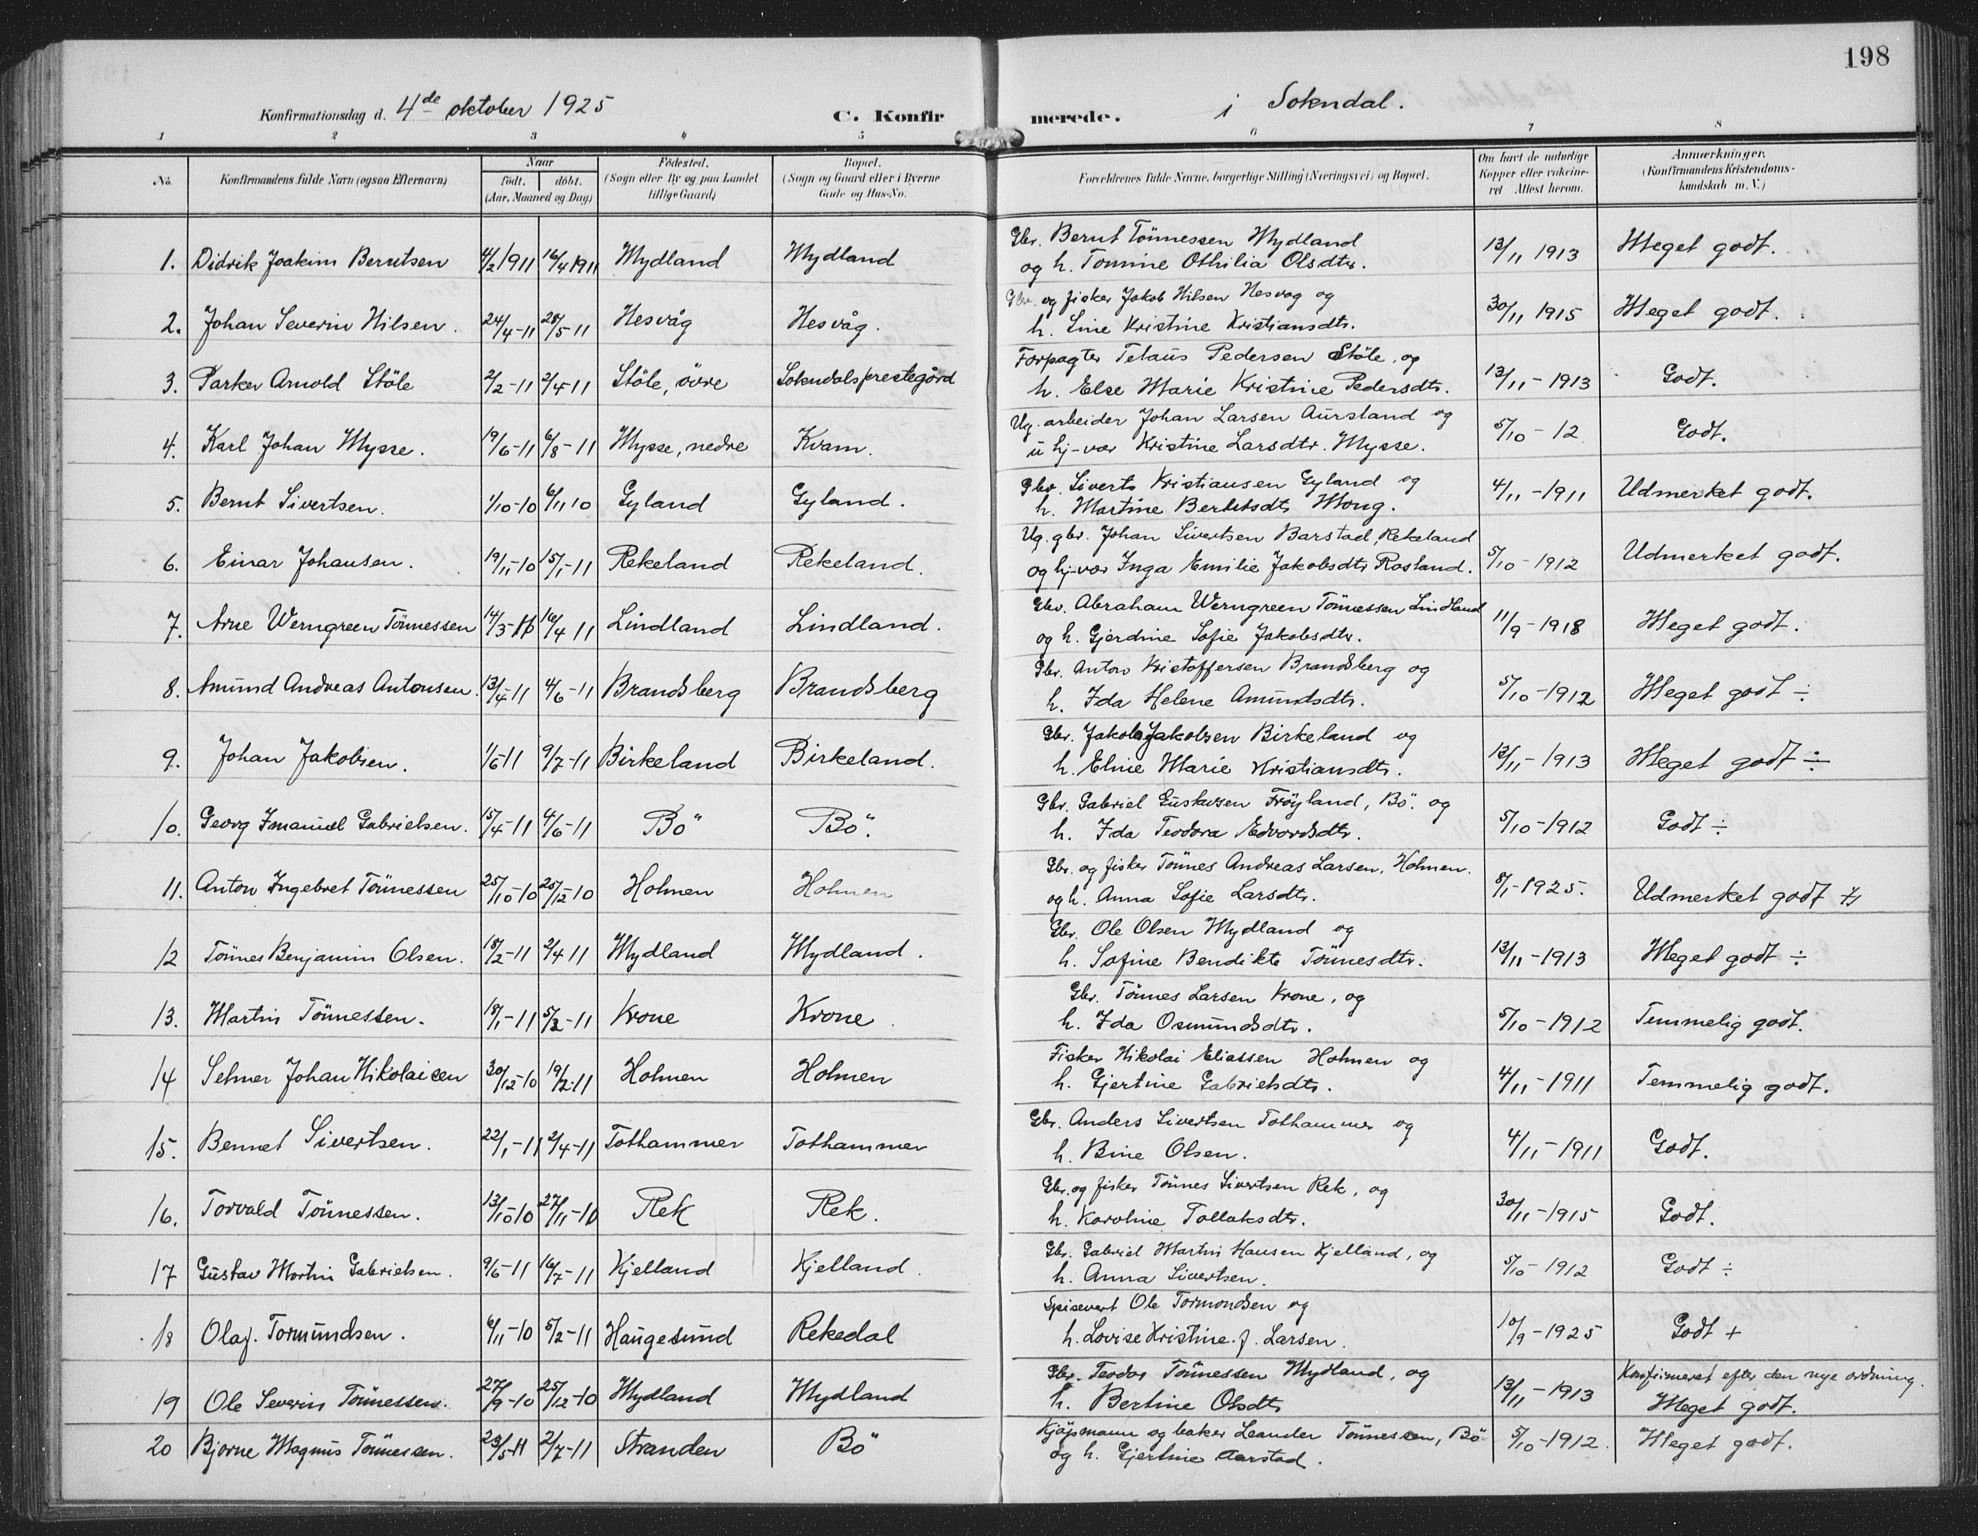 198
Konfirmationsdag d. 4de oktober 1925 C. Konfirmerede. i Sokndal.
1 2 3 4 5 6 7 8
No. Konfirmandens fulde Navn (ogsaa Efternavn) Naar født. døbt. (Aar, Maaned og Dag) Födested. (Sogn eller By og paa Landet tillige Gaard) Bopæl. (Sogn og Gaard eller i Byerne Gade og Hus-No. Forældrenes fulde Navne, borgerlige Stilling (Næringsvei) og Bopæl. Om havt de naturlige Kopper eller vakcineret Attest herom. Anmærkninger. (Konfirmandens Kristendomskundskab m. V.)
1. Didrik Joakim Berntsen 4/2 1911 16/4 1911 Mydland Mydland Gbr. Bernt Tönnessen Mydland og h. Tomine Othilia Olsdtr. 13/11 1913 Meget godt.
2. Johan Severin Nilsen. 24/4-11 28/5-11 Nesvåg Nesvåg. Gbr. og fisker Jakob Nilsen Nesvog og h. Line Kristine Kristiansdtr. 30/11 1915 Meget godt.
3. Parker Arnold Stöle 2/2-11 2/4-11 Stöle, övre Sokndalsprestegård Forpagter Telaus Pedersen Stöle, og h. Else Marie Kristine Pedersdtr. 13/11-1913 Godt.
4. Karl Johan Mysse. 19/6-11 6/8-11 Mysse, nedre Kvam. Ug. arbeider Johan Larsen Aursland og u hj-vær Kristine Larsdtr. Mysse. 5/10-12 Godt.
5. Bernt Sivertsen. 1/10-10 6/11 10 Gyland Gyland. Gbr. Siverts Kristiansen Gyland og h. Martine Berntsdtr Mong. 4/11-1911 Udmerket godt.
6. Einar Johansen. 19/11-10 15/1-11 Rekeland Rekeland. Ug. gbr. Johan Sivertsen Barstad, Rekeland og hj-vær Inga Emilie Jakobsdtr Rosland. 5/10-1912 Udmerket godt.
7. Arne Werngreen Tönnessen 14/3-11 16/4 11 Lindland Lindland. Gbr. Abraham Werngreen Tönnessen Lindland og h. Gjerdine Sofie Jakobsdtr. 11/9-1918 Meget godt.
8. Amund Andreas Antonsen. 13/4-11 4/6-11 Brandsberg Brandsberg Gbr. Anton Kristoffersen Brandsberg og h. Ida Helene Amundsdtr. 5/10-1912 Meget godt ÷
9. Johan Jakobsen. 1/6-11 9/7-11 Birkeland Birkeland. Gbr. Jakob Jakobsen Birkeland og h. Eline Marie Kristiansdtr. 13/11-1913 Meget godt ÷
10. Georg Imanuel Gabrielsen. 15/4-11 4/6-11 Bö Bö. Gbr. Gabriel Gustavsen Fröyland, Bö. og h. Ida Teodora Edvardsdtr. 5/10-1912 Godt ÷
11. Anton Ingebret Tönnessen 25/10-10 25/12-10 Holmen Holmen Gbr. og fisker Tönnes Andreas Larsen, Holmen. og h. Anna Sofie Larsdtr. 8/1-1925. Udmerket godt
12 Tönnes Benjamin Olsen. 18/2-11 2/4 11 Mydland Mydland. Gbr. Ole Olsen Mydland og h. Sofine Bendikte Tönnesdtr. 13/11-1913 Meget godt ÷
13. Martin Tönnessen. 18/1-11 5/3-11 Krone Krone Gbr. Tönnes Larsen Krone, og h. Ida Osmundsdtr. 5/10-1912 Temmelig godt.
14 Selmer Johan Nikolaisen 30/12-10 19/2-11 Holmen Holmen Fisker Nikolai Eliassen Holmen og h. Gjertine Gabrielsdtr. 4/11-1911 Temmelig godt.
15. Bennet Sivertsen. 22/1-11 2/4-11 Tothammer Tothammer Gbr. Anders Sivertsen Tothammer og h. Bine Olsen. 4/11-1911 Godt.
16. Torvald Tönnessen. 13/10-10 27/11-10 Rek Rek. Gbr. og fisker Tönnes Sivertsen Rek, og h. Karoline Tollaksdtr. 30/11-1915 Godt.
17 Gustav Martin Gabrielsen. 9/6-11 16/7-11 Kjelland Kjelland. Gbr. Gabriel Martin Hansen Kjelland, og h. Anna Sivertsen. 5/10-1912 Godt ÷
18 Olaf Tormundsen. 6/11-10 5/2-11 Haugesund Rekedal Spisevert Ole Tormondsen og h. Lovise Kristine f. Larsen. 10/9-1925 Godt +
19 Ole Severin Tönnessen. 27/9-10 25/12-10 Mydland Mydland Gbr. Teodor Tönnessen Mydland, og h. Bertine Olsdtr 13/11-1913 Konfirmeret efter den nye ordning. Meget godt.
20 Bjarne Magnus Tönnessen. 23/5-11 2/7-11 Stranden Bö Kjöpmann og baker Leander Tönnessen, Bö og h. Gjertine Aarstad. 5/10-1912. Meget godt.